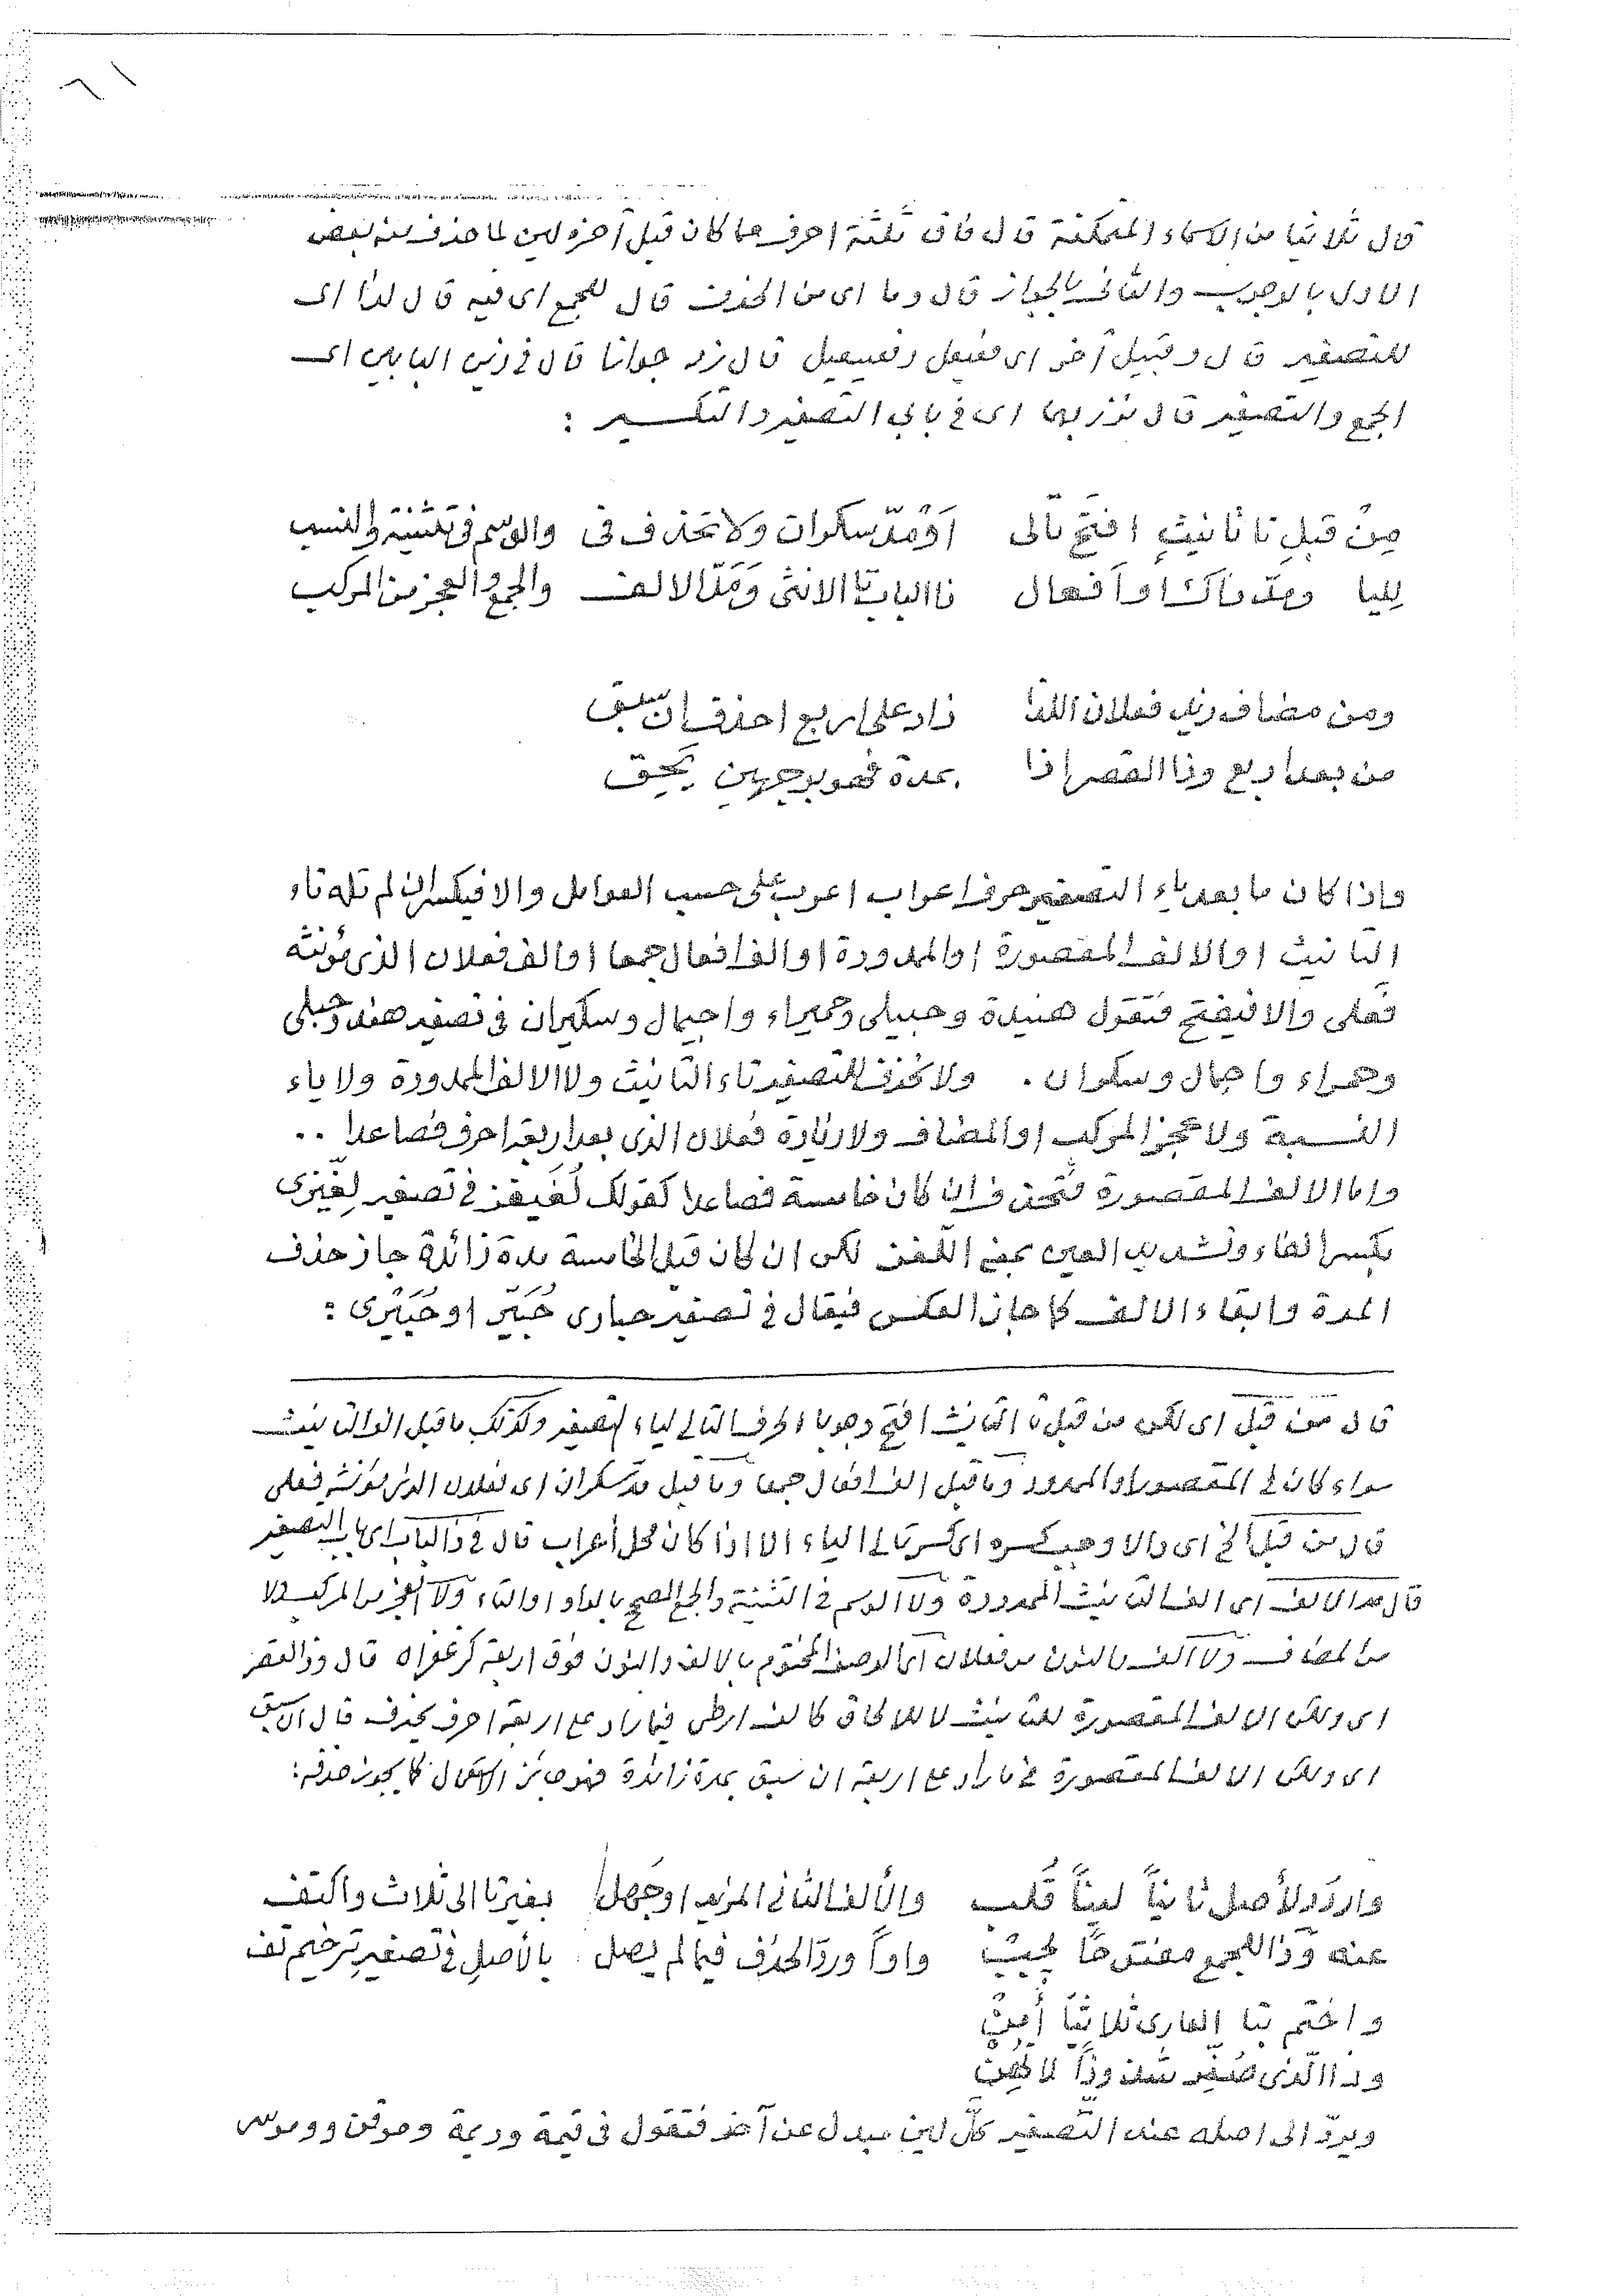 ٦١
قال ثلاثيا من الاسماء المتمكنة قال فاق ثلثة احرف مما كان قبل آخره لين لما حذف منه بعض
الاول بالوجوب والثانى بالجواز قال وما اى من الحذف قال للجمع اى فيه قال لذا اى
للتصغير قال وقبيل آخر اى فعيعل وفعيعيل قال زد جوازا قال فى ذين البابين اى
الجمع والتصغير قال نزر بهما اى فى بابى التصغير والتكسير :
مِن قبلِ تا تأنيثٍ افتح تالى أوْ مَدّ سكران ولا تحذف فى والوسم فى تثنية والنسب
لليا ومدّ ذاك او أفعال ذا الباب تا الانثى وَمَدّ الالف والجمع والعجز من المركب
ومن مضاف زيد فعلان اللذا زاد على اربع احذف ان سبق
من بعد اربع وذا القصر اذا بمدة فهو بوجهين يحق
واذا كان ما بعد ياء التصغير حرف اعراب اعرب على حسب العوامل والا فيكسر ان لم تله تاء
التأنيث او الالف المقصورة او الممدودة او الف افعال جمعا او الف فعلان الذى مؤنثه
فَعلى والا فيفتح فتقول هنيدة وحبيلى وحميراء واجيمال وسكيران فى تصغير هند وحبلى
وحمراء واجمال وسكران . ولا تحذف للتصغير تاء التأنيث ولا الالف الممدودة ولا ياء
النسبة ولا عجز المركب او المضاف ولا زيادة فعلان الذى بعد اربعة احرف فصاعدا ..
واما الالف المقصورة فتُحذف ان كان خامسة فصاعدا كقولك لُغَيغز فى تصغير لِغّيزى
بكسر الفاء وتشديد العين بمعنى اللغز لكن ان كان قبل الخامسة مدة زائدة جاز حذف
المدة وابقاء الالف كما جاز العكس فيقال فى تصغير حبارى حُبَيّر او حُبَيْرى :
قال من قبل اى لكن من قبل تا التأنيث افتح وجوبا الحرف التالى لياء التصغير وكذلك ما قبل الف التأنيث
سواء كان فى المقصور او الممدود وما قبل الف افعال جمعا وما قبل مد سكران اى فعلان الذى مؤنثه فعلى
قال من قبل الخ اى والا وجب كسره اى كسر تالى الياء الا اذا كان محل اعراب قال فى ذا الباب اى باب التصغير
قال مد الالف اى الف التأنيث الممدودة ولا الوسم فى التثنية والجمع المصحح بالواو او التاء ولا العجز من المركب ولا
من المضاف ولا الف بالنون من فعلان اى الوصف المختوم بالالف والنون فوق اربعة كزعفران قال وذا القصر
اى ولكن الالف المقصورة للتأنيث لا للالحاق كالف ارطى فيما زاد على اربعة احرف يحذف قال ان سبق
اى ولكن الالف المقصورة فى ما زاد على اربعة ان سبق بمدة زائدة فهو جائز الاستعمال كما يجوز حذفه :
واردد لأصل ثانياً ليناً قُلب والألف الثانى المزيد اوجُهل بغير تا الى ثلاث واكتف
عنه وَذا للجمع مفتوحًا يجبْ واواً وردّ الحذف فيما لم يصل بالأصل فى تصغيرِ ترخيم تف
واختم بتا العارى ثلاثياً أُمِنْ
وذا الّذى صُغّر شذوذاً لا يُهن
ويردّ الى اصله عند التّصغير كلّ لين مبدل عن آخر فتقول فى قيمة وديمة وموقن وموسر